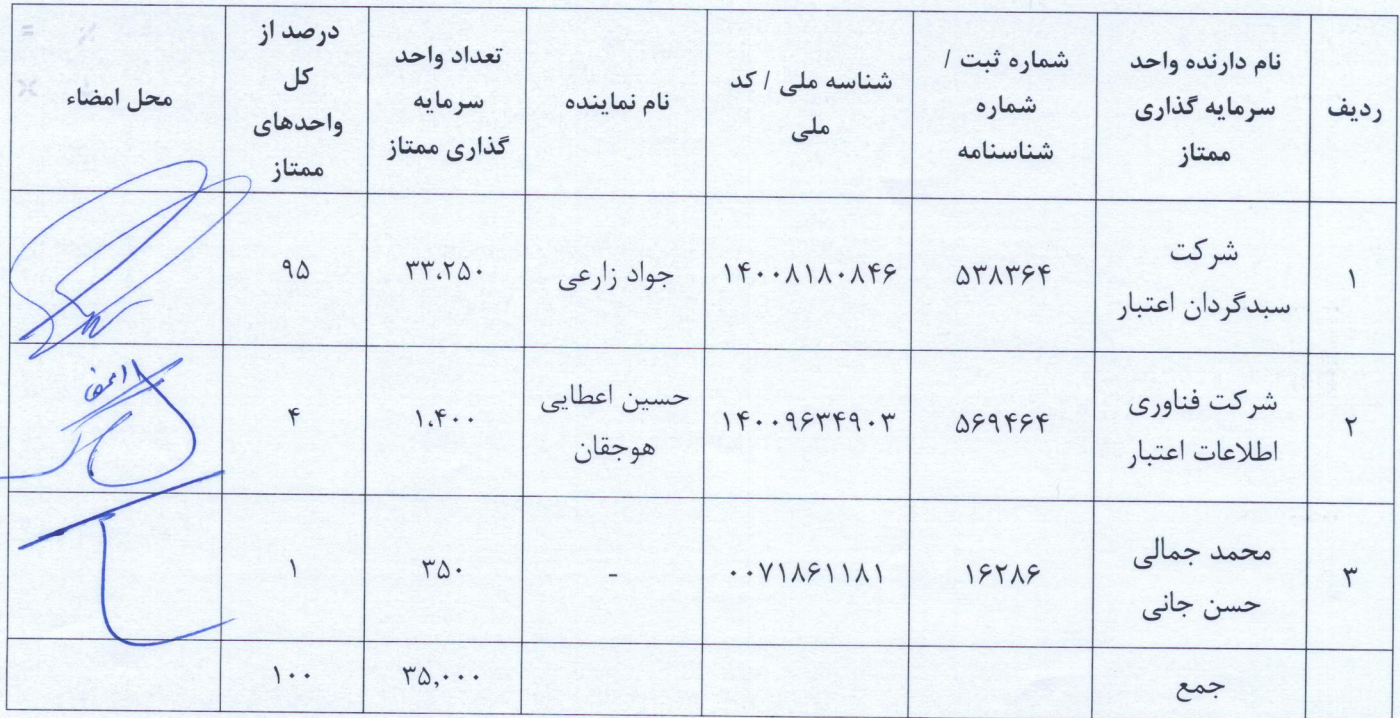 ردیف
نام دارنده واحد
سرمایه گذاری
ممتاز
شماره ثبت /
شماره
شناسنامه
شناسه ملی / کد
ملی
نام نماینده
تعداد واحد
سرمایه
گذاری ممتاز
درصد از
کل
واحدهای
ممتاز
محل امضاء
۱
شرکت
سبدگردان اعتبار
۵۳۸۳۶۴
۱۴۰۰۸۱۸۰۸۴۶
جواد زارعی
۳۳،۲۵۰
۹۵
۲
شرکت فناوری
اطلاعات اعتبار
۵۶۹۴۶۴
۱۴۰۰۹۶۳۴۹۰۳
حسین اعطایی
هوجقان
۱،۴۰۰
۴
۳
محمد جمالی
حسن جانی
۱۶۲۸۶
۰۰۷۱۸۶۱۱۸۱
-
۳۵۰
۱
جمع
۳۵,۰۰۰
۱۰۰